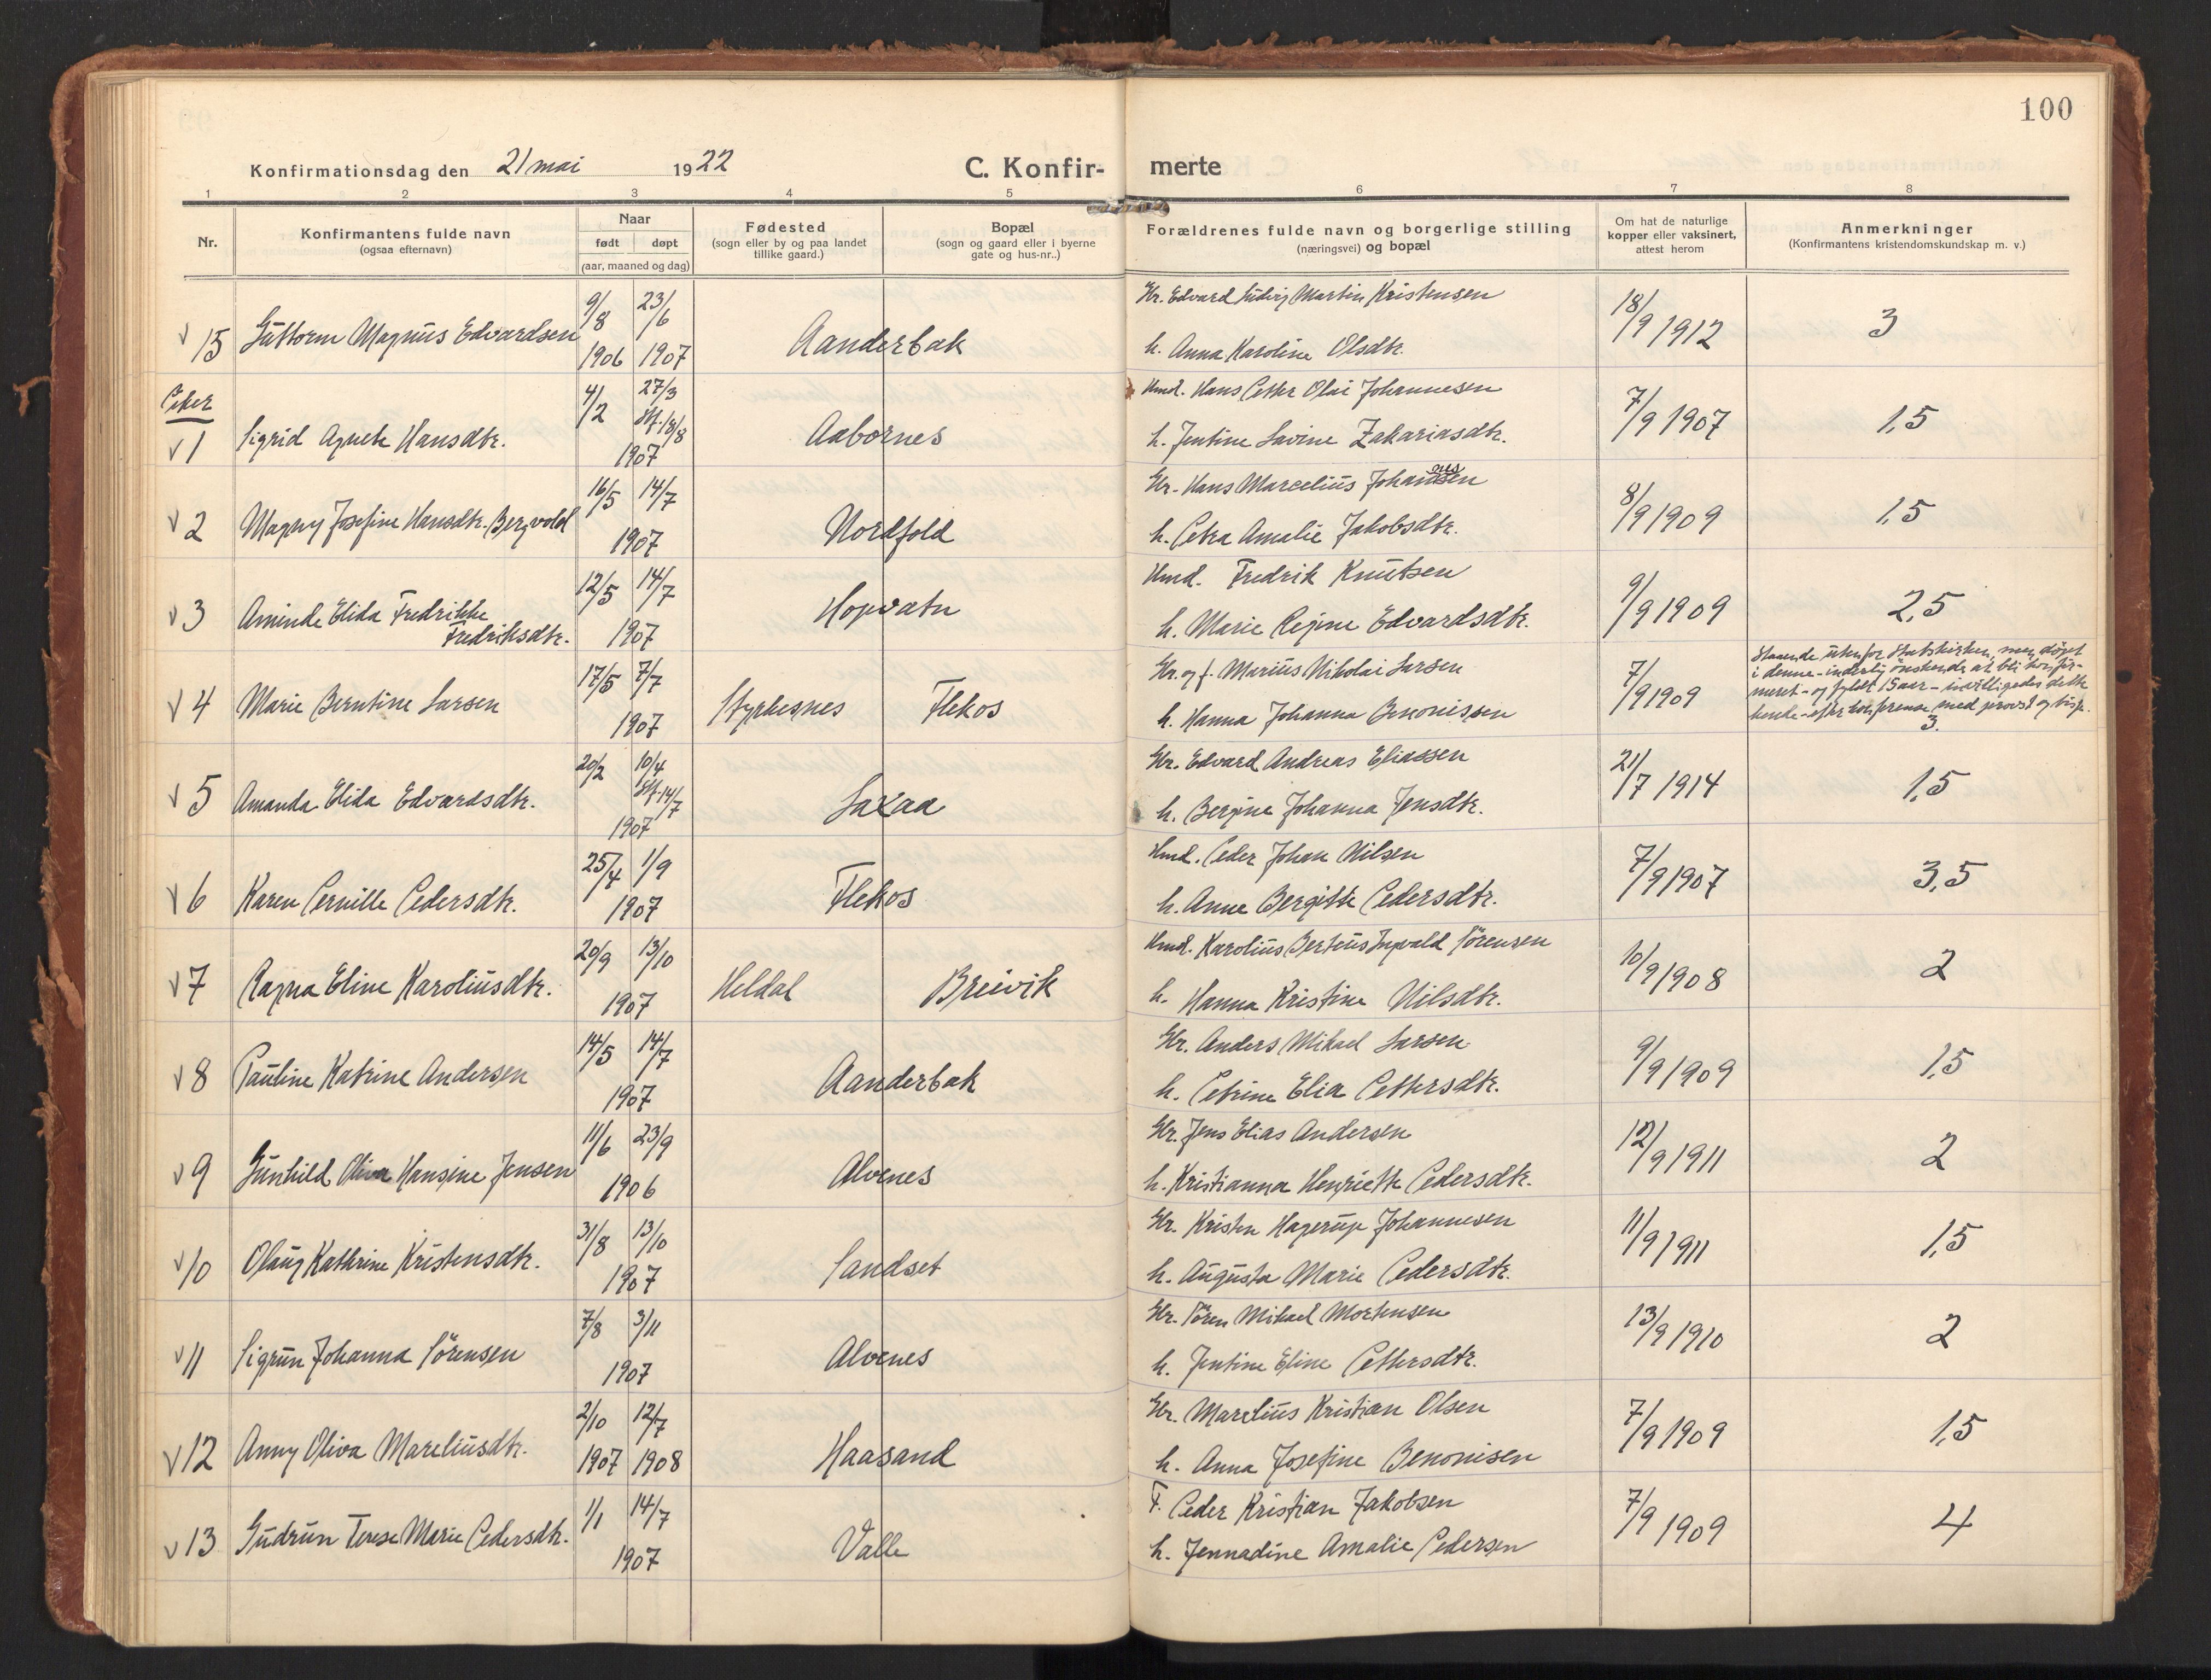 100
Konfirmationsdag den 21 mai 1922
C. Konfir-
merte
1 2 3 4 5 6 7 8
Nr.
Konfirmantens fulde navn
(ogsaa efternavn)
Naar
født døpt
(aar, maaned og dag)
Fødested
(sogn eller by og paa landet
tillike gaard.)
Bopæl
(sogn og gaard eller i byerne
gate og hus-nr..)
Forældrenes fulde navn og borgerlige stilling
(næringsvei) og bopæl
Om hat de naturlige
kopper eller vaksinert,
attest herom
Anmerkninger
(Konfirmantens kristendomskundskap m. v.)
v 15 Guttorm Magnus Edvardsen 9/8 1906 23/6 1907 Aanderbak
Gr. Edvard Ludvig Martin Kristensen
h. Anna Karoline Olsdtr.
18/9 1912 3
Piker
v 1 Sigrid Agnete Hansdtr. 4/2 27/3 Stf. 18/8 1907 Aabornes
Hmd. Hans Petter Olai Johannesen
h. Jentine Lavine Zakariasdtr.
7/9 1907 1,5
v 2 Magny Josefine Hansdtr. Bergvold 16/5 14/7 1907 Nordfold
Gr. Hans Marcelius Johansen
h. Petra Amalie Jakobsdtr.
8/9 1909 1,5
v 3 Aminda Elida Fredrikke
Fredriksdtr. 12/5 14/7 1907 Hopvatn
Hmd. Fredrik Knutsen
h. Marie Regine Edvardsdtr.
9/9 1909 2,5
v 4 Marie Berntine Larsen 17/5 7/7 1907 Styrkesnes Flekos
Gr. og f. Marius Nikolai Larsen
h. Hanna Johanna Benonissen
7/9 1909
Staaende utenfor Statskirken, men døpt
i denne - inderlig ønskende at bli konfir-
meret - og fyldt 15 aar - invilligedes dette
hende - efter konferense med provst og bisp.
3.
v 5 Amanda Elida Edvardsdtr. 20/2 10/4 Stf. 14/7 1907 Laxaa
Gr. Edvard Andreas Eliassen
h. Bergine Johanna Jensdtr.
21/7 1914 1,5
v 6 Karen Pernille Pedersdtr. 25/4 1/9 1907 Flekos
Hmd. Peder Johan Nilsen
h. Anne Bergitte Pedersdtr.
7/9 1907 3,5
v 7 Ragna Eline Karoliusdtr. 20/9 13/10 1907 Heldal Breivik
Hmd. Karolius Berteus Ingvald Sørensen
h. Hanna Kristine Nilsdtr.
10/9 1908 2
v 8 Pauline Katrine Andersen 14/5 14/7 1907 Aanderbak
Gr. Anders Mikael Larsen
h. Petrine Elia Pettersdtr.
9/9 1909 1,5
v 9 Gunhild Oliva Hansine Jensen 11/6 23/9 1906 Alvenes
Gr. Jens Elias Andersen
h. Kristianna Henriette Pedersdtr.
12/9 1911 2
v 10 Olaug Kathrine Kristensdtr. 31/8 13/10 1907 Sandset
Gr. Kristen Hagerup Johannesen
h. Augusta Marie Pedersdtr.
11/9 1911 1,5
v 11 Sigrun Johanna Sørensen 7/8 3/11 1907 Alvenes
Gr. Søren Mikael Mortensen
h. Jentine Eline Pettersdtr.
13/9 1910 2
v 12 Anny Oliva Mareliusdtr. 2/10 1907 12/7 1908 Haasand
Gr. Marelius Kristian Olsen
h. Anna Josefine Benonisen
7/9 1909 1,5
v 13 Gudrun Terese Marie Pedersdtr. 1/1 14/7 1907 Valle
F. Peder Kristian Jakobsen
h. Jennadine Amalie Pedersen
7/9 1909 4